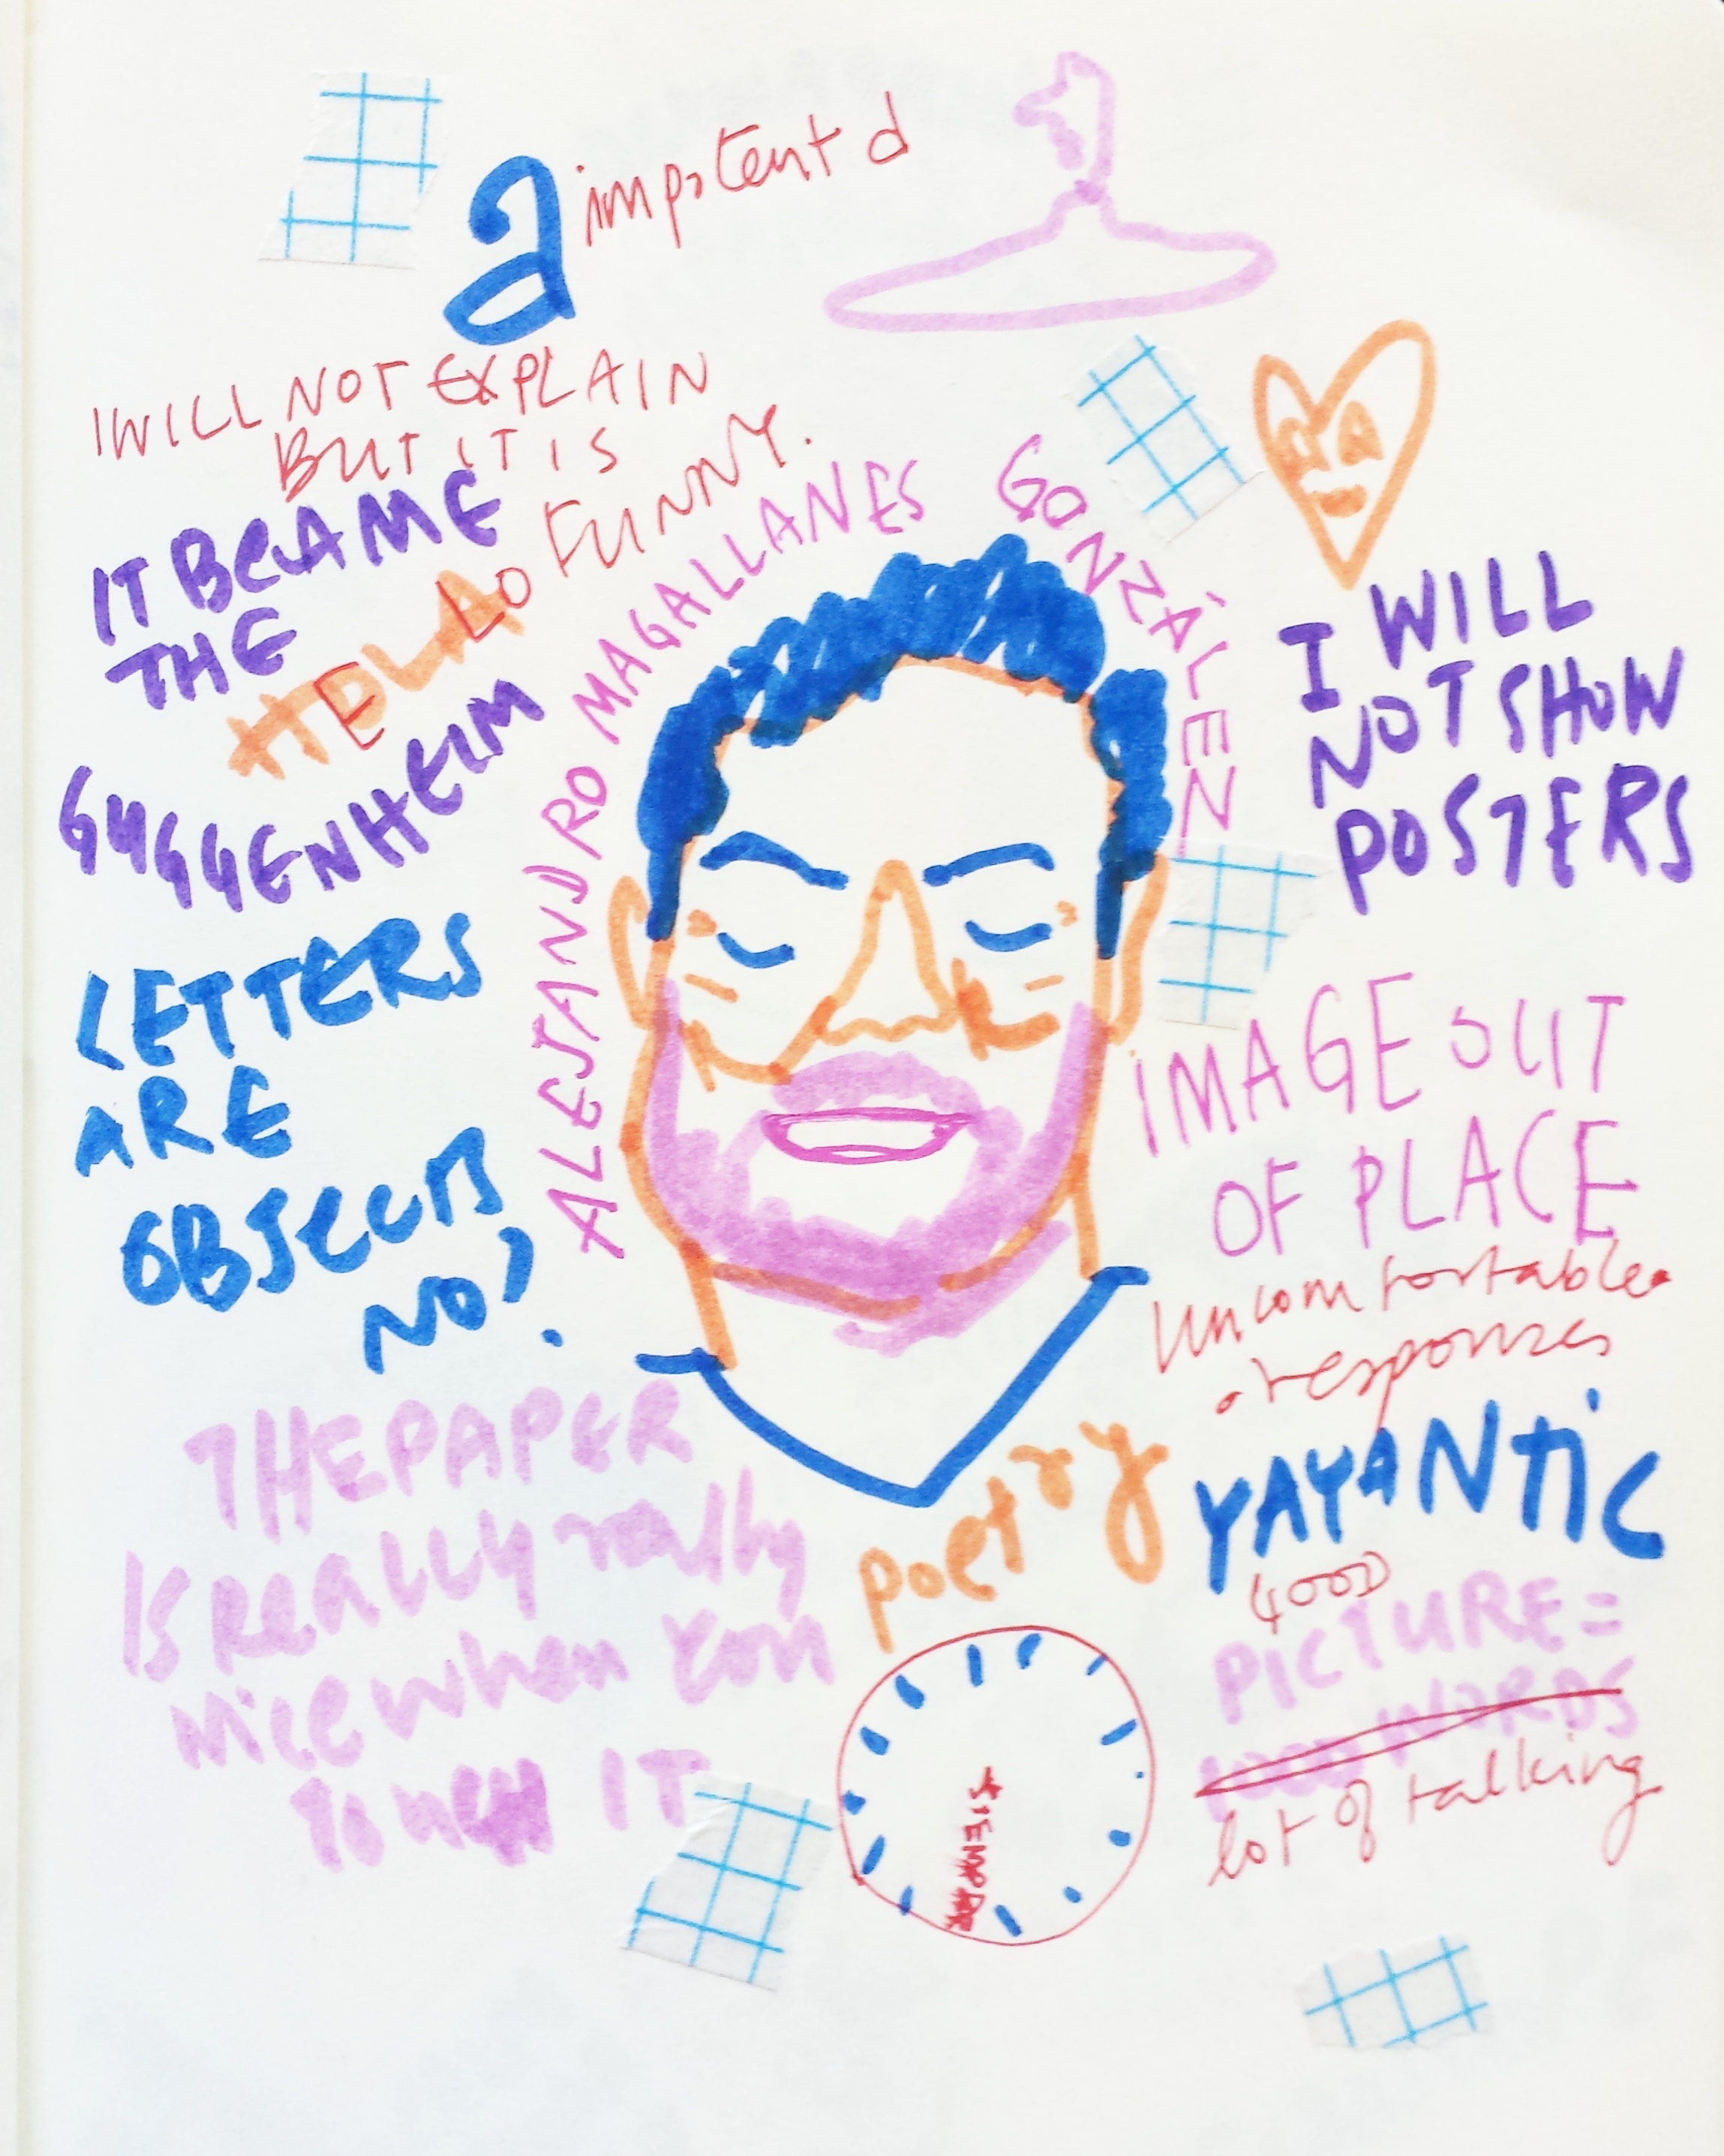 a impotent d
I WILL NOT EXPLAIN
BUT IT IS
FUNNY.
IT BECAME
THE
GUGGENHEIM
ALEJANDRO MAGALLANES GONZÁLEZ
I WILL
NOT SHOW
POSTERS
LETTERS
ARE
OBJECTS
NO?
IMAGE OUT
OF PLACE
uncomfortable
responses
THE PAPER
IS REALLY really
Nice when You
TOUCH IT
poetry
YAYANTIC
GOOD
PICTURE =
1000 WORDS
lot of talking
SIEMPRE